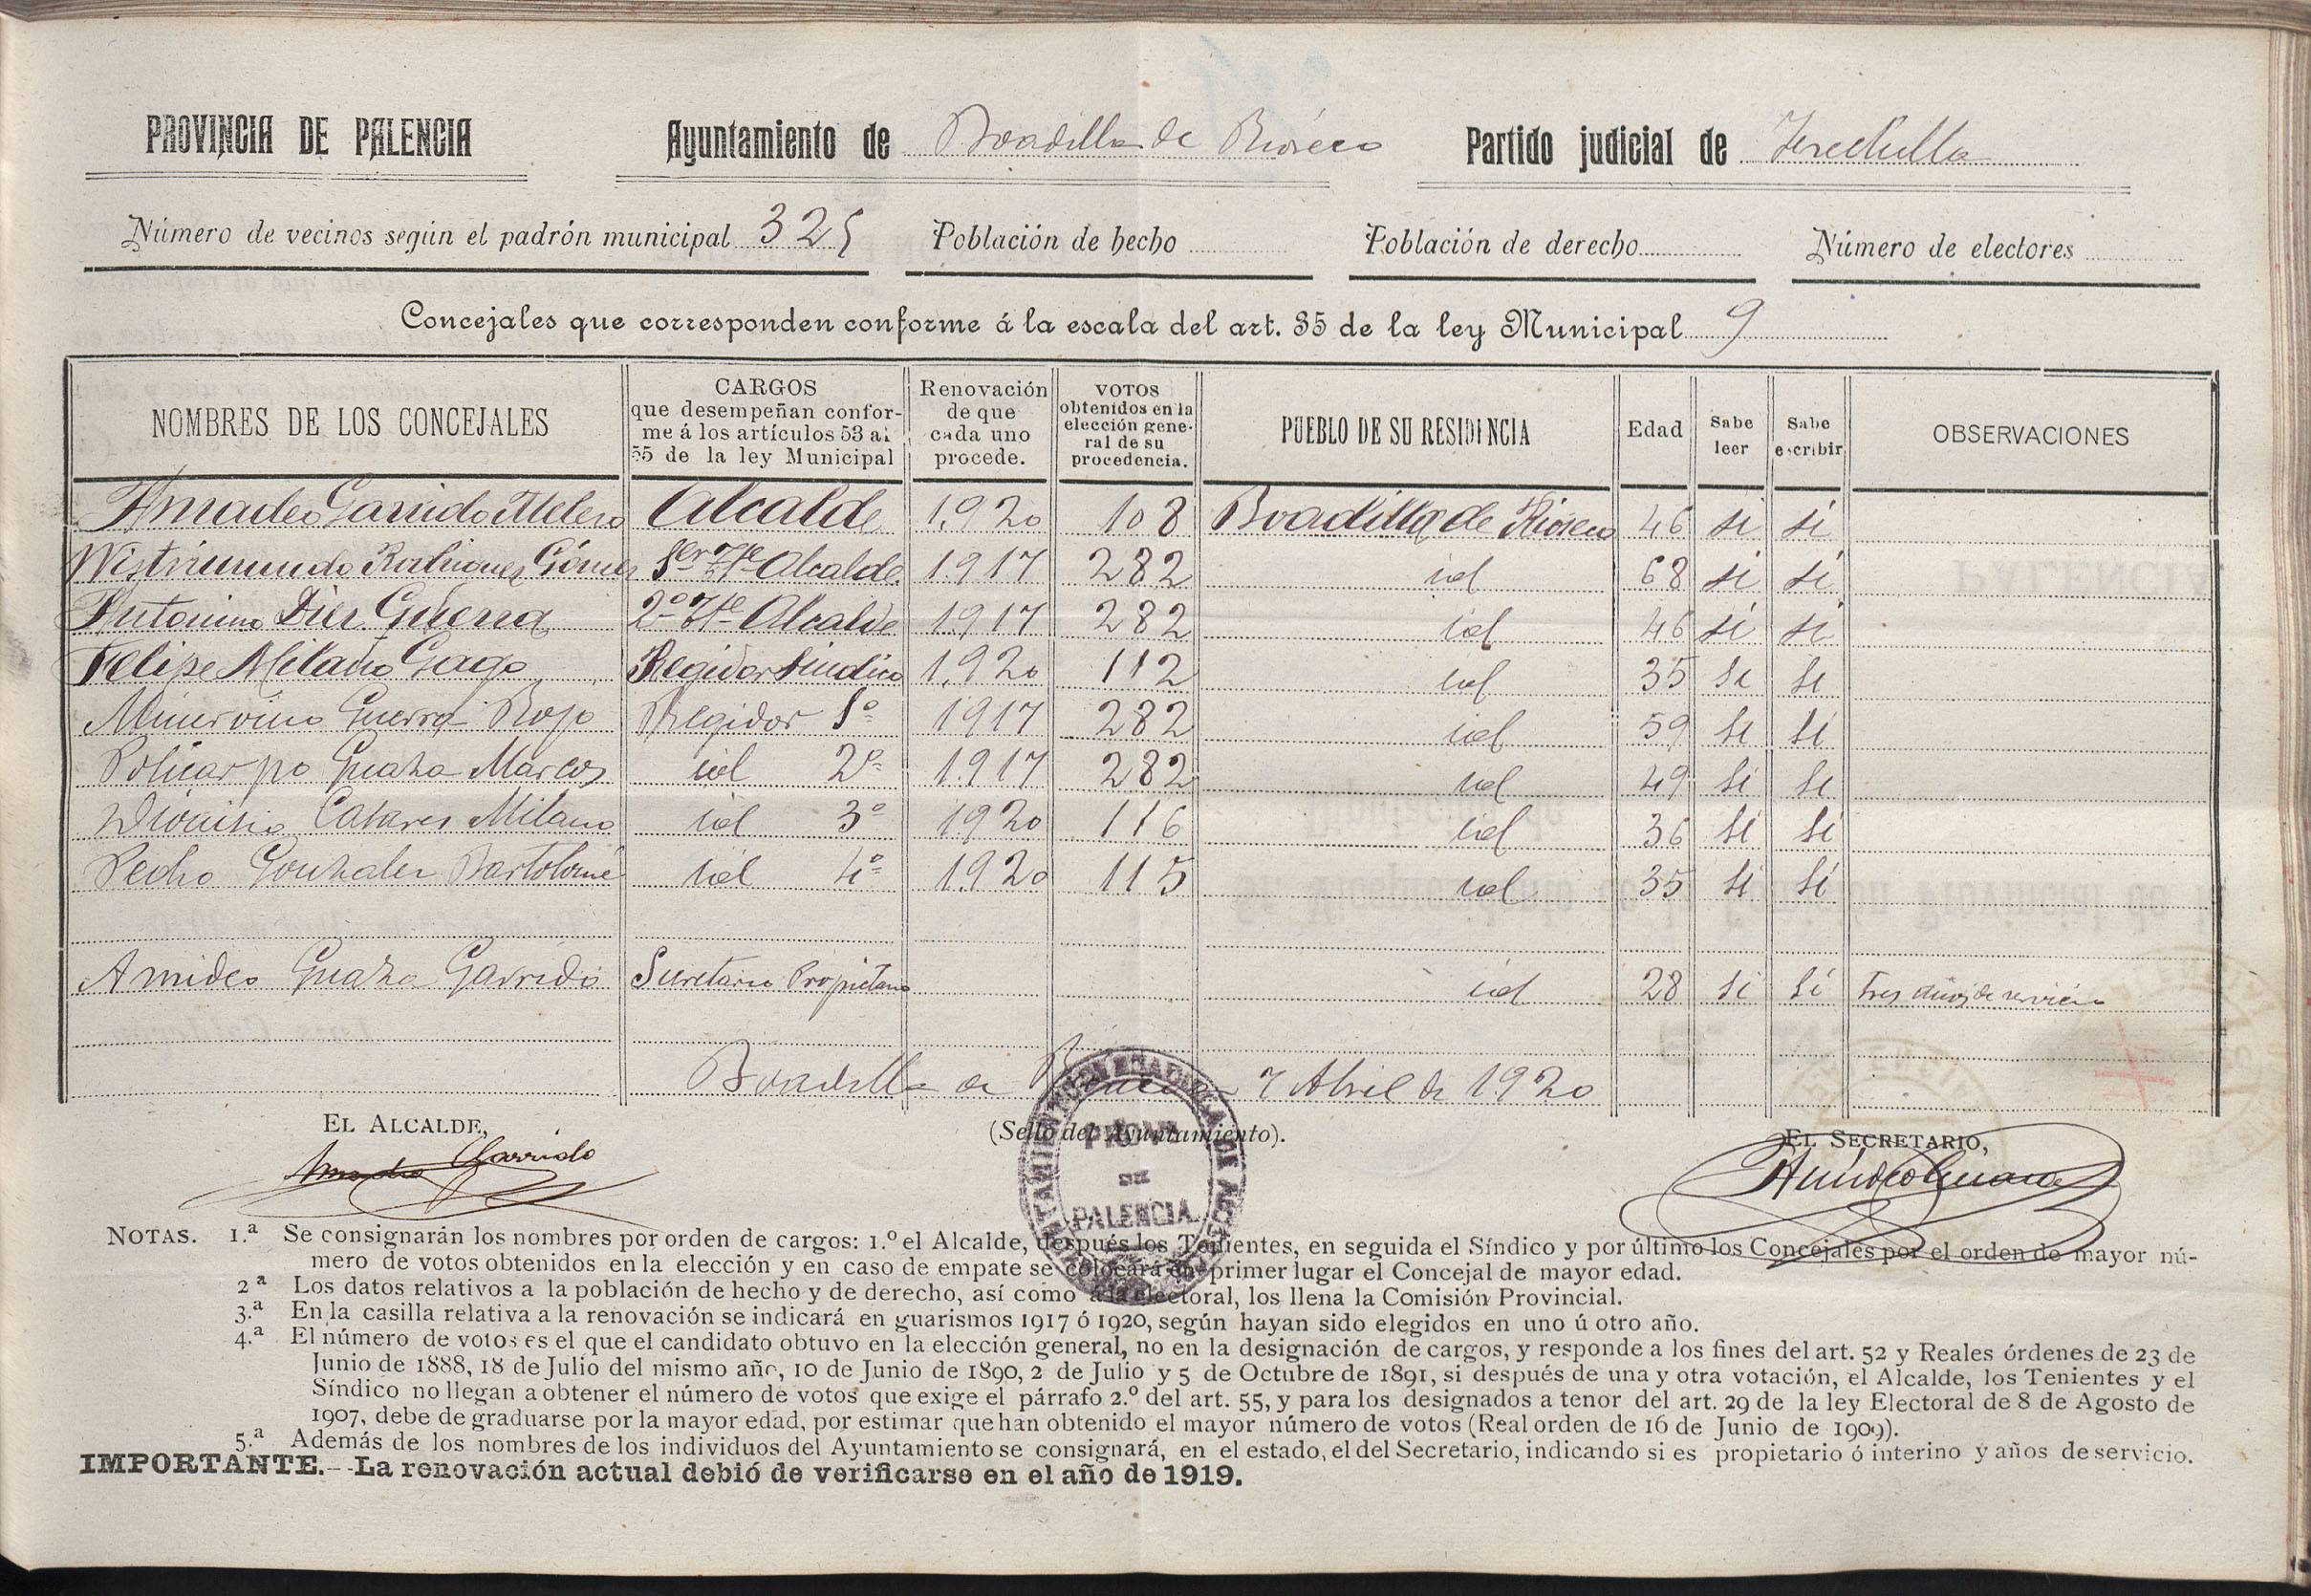 PROVINCIA DE PALENCIA Ayuntamiento de Boadilla de Rioseco Partido judicial de Frechilla
Número de vecinos según el padrón municipal 325 Población de hecho Población de derecho Número de electores
Concejales que corresponden conforme á la escala del art. 35 de la ley Municipal 9
NOMBRES DE LOS CONCEJALES
CARGOS
que desempeñan confor-
me á los artículos 53 al
55 de la ley Municipal
Renovación
de que
cada uno
procede.
VOTOS
obtenidos en la
elección gene-
ral de su
procedencia.
PUEBLO DE SU RESIDENCIA
Edad
Sabe
leer
Sabe
escribir
OBSERVACIONES
Amadeo Garrido Melero Alcalde 1920 108 Boadilla de Rioseco 46 si si
Wistrimundo Rodriguez Gómez 1er Tte Alcalde 1917 282 id 68 si si
Antonino Diez Guerra 2º Tte Alcalde 1917 282 id 46 si si
Felipe Milano Gago Regidor Sindico 1920 112 id 35 si si
Minervino Guerra Rojo Regidor 1º 1917 282 id 59 si si
Policarpo Guaza Marcos id 2º 1917 282 id 49 si si
Dionisio Casares Milano id 3º 1920 116 id 36 si si
Pedro Gonzalez Bartolomé id 4º 1920 115 id 35 si si
Amideo Guaza Garrido Secretario Propietario id 28 si si tres años de servicio
Boadilla de Rioseco 7 Abril de 1920
EL ALCALDE,
Amadeo Garrido
(Sello del Ayuntamiento).
PROVA
DE
PALENCIA
EL SECRETARIO,
Amideo Guaza
NOTAS. 1.ª Se consignarán los nombres por orden de cargos: 1.º el Alcalde, después los Tenientes, en seguida el Síndico y por último los Concejales por el orden de mayor nú-
mero de votos obtenidos en la elección y en caso de empate se colocará en primer lugar el Concejal de mayor edad.
2ª Los datos relativos a la población de hecho y de derecho, así como a la electoral, los llena la Comisión Provincial.
3.ª En la casilla relativa a la renovación se indicará en guarismos 1917 ó 1920, según hayan sido elegidos en uno ú otro año.
4.ª El número de votos es el que el candidato obtuvo en la elección general, no en la designación de cargos, y responde a los fines del art. 52 y Reales órdenes de 23 de
Junio de 1888, 18 de Julio del mismo año, 10 de Junio de 1890, 2 de Julio y 5 de Octubre de 1891, si después de una y otra votación, el Alcalde, los Tenientes y el
Síndico no llegan a obtener el número de votos que exige el párrafo 2.º del art. 55, y para los designados a tenor del art. 29 de la ley Electoral de 8 de Agosto de
1907, debe de graduarse por la mayor edad, por estimar que han obtenido el mayor número de votos (Real orden de 16 de Junio de 1909).
5.ª Además de los nombres de los individuos del Ayuntamiento se consignará, en el estado, el del Secretario, indicando si es propietario ó interino y años de servicio.
IMPORTANTE.—La renovación actual debió de verificarse en el año de 1919.